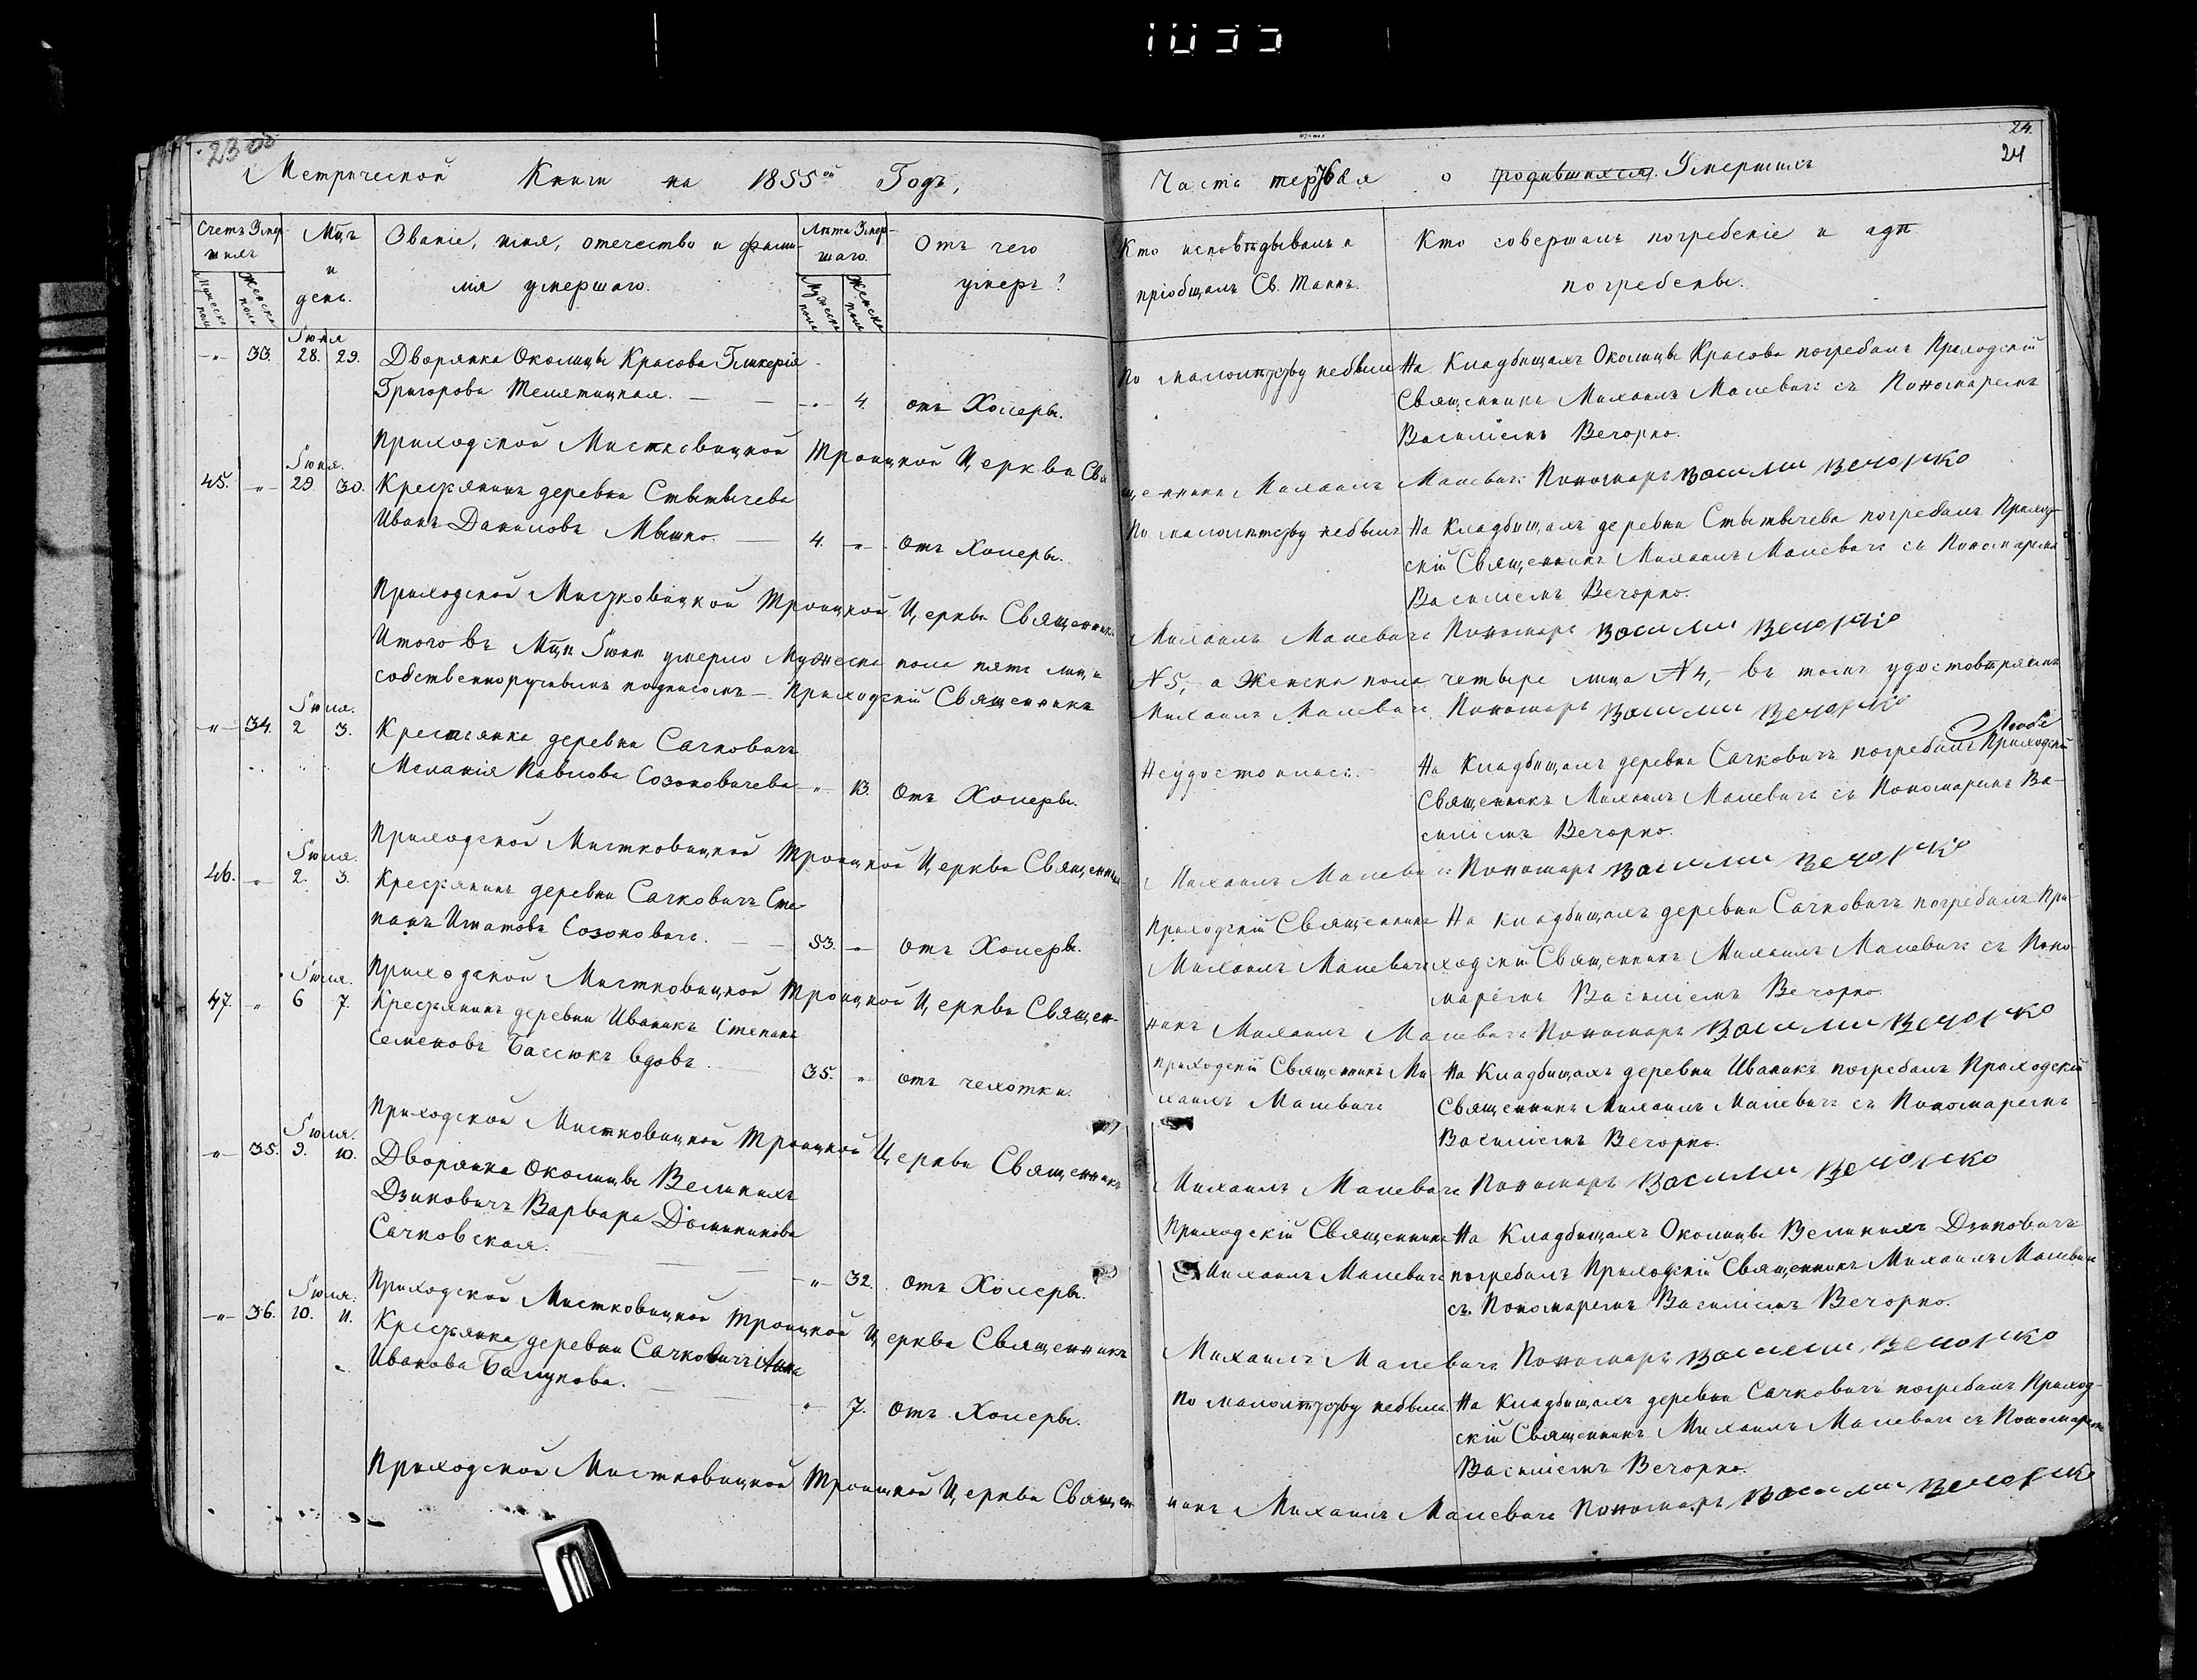 1855
23 об
24.
24
Метрической Книги на 1855ой Годъ,
Часть третья о родившихся. Умершихъ
Счетъ Умер-
шихъ
Мужеска пола
Женска пола
Мцъ
и
день.
Званіе, имя, отечество и фами-
лія умершаго.
Лѣта Умер-
шаго.
Мужеска пола
Женска пола
Отъ чего
умеръ?
Кто исповѣдывалъ и
пріобщалъ Св. Таинъ.
Кто совершалъ погребеніе и гдѣ
погребены.
Іюня
-"- 33. 28. 29. Дворянка Околицы Красова Гликерія
Григорова Телятицкая. -"- 4. отъ Холеры.
По малолѣтству небыла На Кладбищахъ Околицы Красова погребалъ Приходскій
Священникъ Михаилъ Малевичъ съ Пономаремъ
Василіемъ Вечорко.
Приходской Мистковицкой Троицкой Церкви Свя
щенникъ Михаилъ Малевичъ Пономарь Василии Вечорко
Іюня.
45. -"- 29. 30. Крестьянинъ деревни Стытычева
Иванъ Даниловъ Мышко. 4. -"- Отъ Холеры.
По малолѣтству небылъ На Кладбищахъ деревни Стытычева погребалъ Приход-
скій Священникъ Михаилъ Малевичъ съ Пономаремъ
Василіемъ Вечорко.
Приходской Мистковицкой Троицкой Церкви Священникъ
Михаилъ Малевичъ Пономарь Василии Вечорко
Итого въ Мцѣ Іюнѣ умерло Мужеска пола пять лицъ
N 5, а Женска пола четыре лица N 4, - въ томъ удостовѣряемъ
собственноручнымъ подписомъ - Приходскій Священникъ
Михаилъ Малевичъ Пономарь Василии Вечорко
Іюля.
-"- 34. 2 3. Крестьянка деревни Сачковичъ
Меланія Павлова Созоновичева -"- 13. Отъ Холеры.
Неудостоилась. На Кладбищахъ деревни Сачковичъ погребалъ Приходскій
Священникъ Михаилъ Малевичъ съ Пономаремъ Ва-
силіемъ Вечорко.
Приходской Мистковицкой Троицкой Церкви Священникъ
Михаилъ Малевичъ Пономарь Василии Вечорко
Іюля.
46. -"- 2. 3. Крестьянинъ деревни Сачковичъ Сте-
панъ Игнатовъ Созоновичъ. 53. -"- отъ Холеры.
Приходскій Священникъ На кладбищахъ деревни Сачковичъ погребалъ При-
Михаилъ Малевичъ ходскій Священникъ Михаилъ Малевичъ съ Поно-
маремъ Василіемъ Вечорко.
Приходской Мистковицкой Троицкой Церкви Священ-
никъ Михаилъ Малевичъ Пономарь Василии Вечорко
Іюля.
47. -"- 6 7. Крестьянинъ деревни Иваникъ Степанъ
Семеновъ Басюкъ вдовъ. 35. -"- отъ чехотки.
Приходскій Священникъ Ми На Кладбищахъ деревни Иваникъ погребалъ Приходскій
хаилъ Малевичъ Священникъ Михаилъ Малевичъ съ Пономаремъ
Василіемъ Вечорко.
Приходской Мистковицкой Троицкой Церкви Священникъ
Михаилъ Малевичъ Пономарь Василии Вечорко
Іюля.
-"- 35. 9. 10. Дворянка Околицы Великихъ
Дзиковичъ Варвара Доминикова
Сачковская. -"- 32. отъ Холеры.
Приходскій Священникъ На Кладбищахъ Околицы Великихъ Дзиковичъ
Михаилъ Малевичъ погребалъ Приходскій Священникъ Михаилъ Малевичъ
съ Пономаремъ Василіемъ Вечорко.
Приходской Мистковицкой Троицкой Церкви Священникъ
Михаилъ Малевичъ Пономарь Василии Вечорко
Іюля.
-"- 36. 10. 11. Крестьянка деревни Сачковичъ Анна
Иванова Балукова. -"- 7. Отъ Холеры.
По малолѣтству небыла. На Кладбищахъ деревни Сачковичъ погребалъ Приход-
скій Священникъ Михаилъ Малевичъ съ Пономаремъ
Василіемъ Вечорко.
Приходской Мистковицкой Троицкой Церкви Священ
никъ Михаилъ Малевичъ Пономарь Василии Вечорко